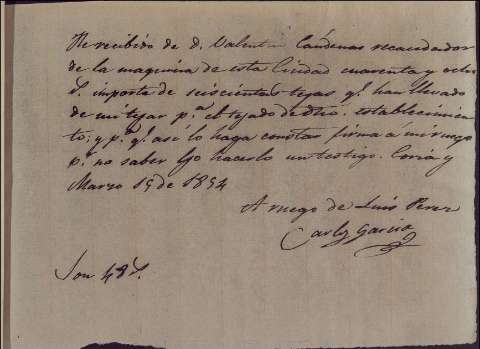 He recibido de D. Valentin Cárdenas recaudador
de la maquina de esta Ciudad cuarenta y ocho
r.s importe de seiscientas tejas q.e han llevado
de mi tejar p.a el tejado de dho. establecimien
to; y p.a q.e así lo haga constar firma a mi ruego
p.r no saber yo hacerlo un testigo. Coria y
Marzo 15 de 1854
A ruego de Luis Perez
Carlos Garcia
Son 48 r.s